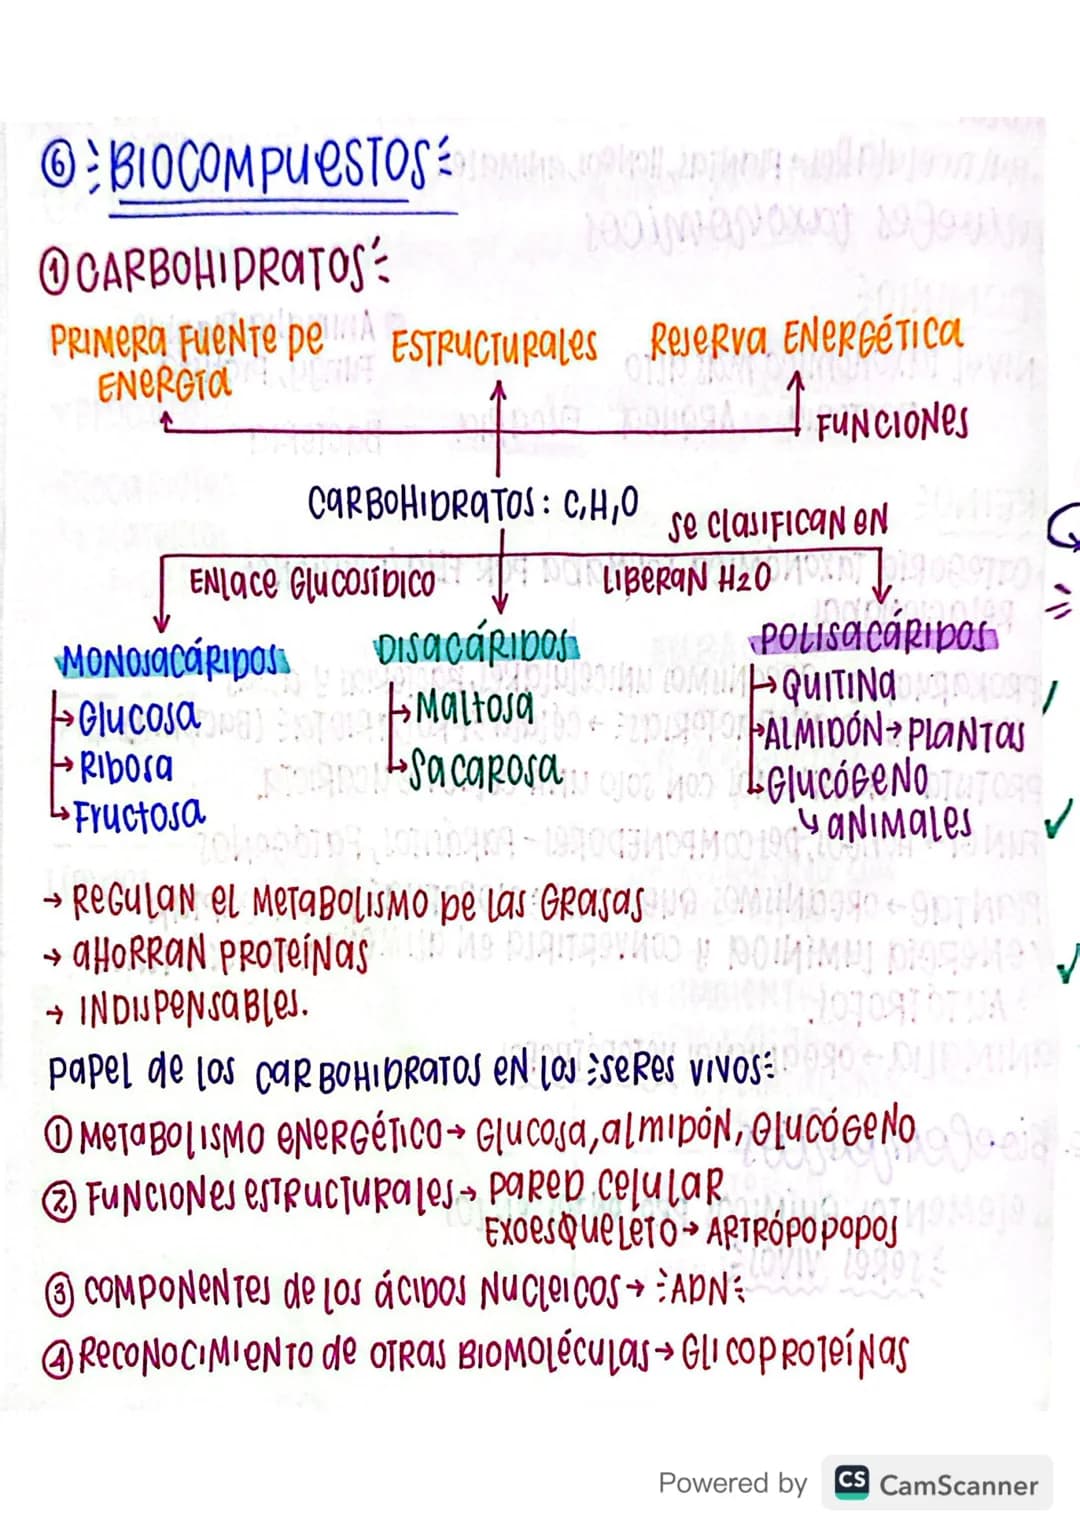 ⑥ BIOCOMPUESTOS
① CARBOHIDRATOS
PRIMERA FUENTE DE ENERGÍA
ESTRUCTURALES
RESERVA ENERGÉTICA
FUNCIONES
CARBOHIDRATOS: C,H,O
SE CLASIFICAN EN
ENLACE GLUCOSÍDICO
LIBERAN H2O
MONOSACÁRIDOS
→ GLUCOSA
→ RIBOSA
→ FRUCTOSA
DISACÁRIDOS
→ MALTOSA
→ SACAROSA
POLISACÁRIDOS
→ QUITINA
→ ALMIDÓN → PLANTAS
→ GLUCÓGENO
↳ ANIMALES
→ REGULAN EL METABOLISMO DE LAS GRASAS
→ AHORRAN PROTEÍNAS
→ INDISPENSABLES.
PAPEL DE LOS CARBOHIDRATOS EN LOS SERES VIVOS
① METABOLISMO ENERGÉTICO → GLUCOSA, ALMIDÓN, GLUCÓGENO
② FUNCIONES ESTRUCTURALES → PARED CELULAR
EXOESQUELETO → ARTRÓPODOS
③ COMPONENTES DE LOS ÁCIDOS NUCLEICOS → ADN
④ RECONOCIMIENTO DE OTRAS BIOMOLÉCULAS → GLICOPROTEÍNAS
Powered by CS CamScanner